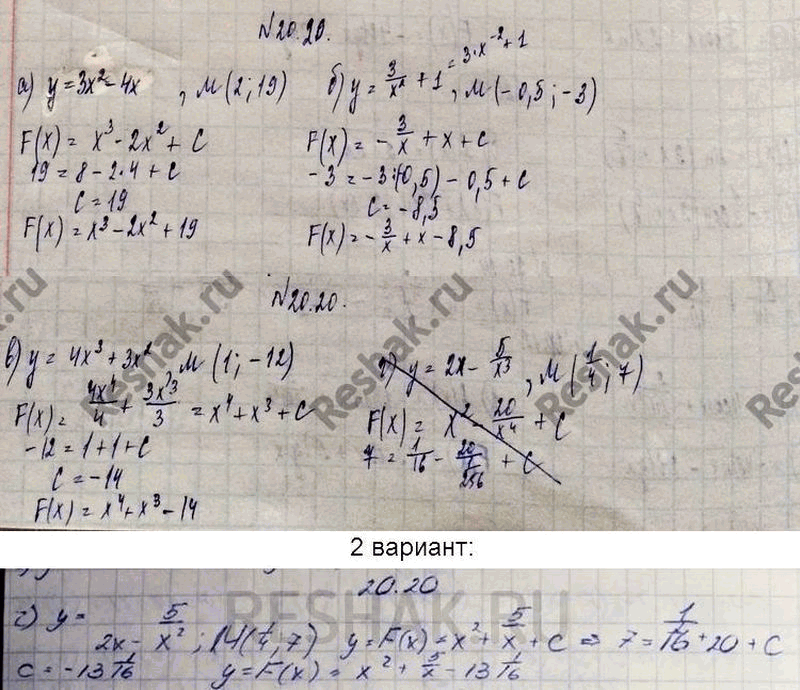 №20.20.
а) y = 3x² - 4x , M(2; 19)
F(x) = x³ - 2x² + C
19 = 8 - 2·4 + C
C = 19
F(x) = x³ - 2x² + 19
б) y = 3/x² + 1 = 3·x⁻² + 1 , M(-0,5; -3)
F(x) = -3/x + x + C
-3 = -3:(-0,5) - 0,5 + C
C = -8,5
F(x) = -3/x + x - 8,5
№20.20.
в) y = 4x³ + 3x² , M(1; -12)
F(x) = 4x⁴/4 + 3x³/3 = x⁴ + x³ + C
-12 = 1 + 1 + C
C = -14
F(x) = x⁴ + x³ - 14
г) y = 2x - 5/x³ , M(1/4; 7)
F(x) = x² - 20/x⁴ + C
7 = 1/16 - 20/1/256 + C
Reshak.ru
Reshak.ru
Reshak.ru
2 вариант:
20.20
RESHAK.RU
г) y = 2x - 5/x² ; M(1/4; 7) y = F(x) = x² + 5/x + C ⇒ 7 = 1/16 + 20 + C
C = -13 1/16 y = F(x) = x² + 5/x - 13 1/16